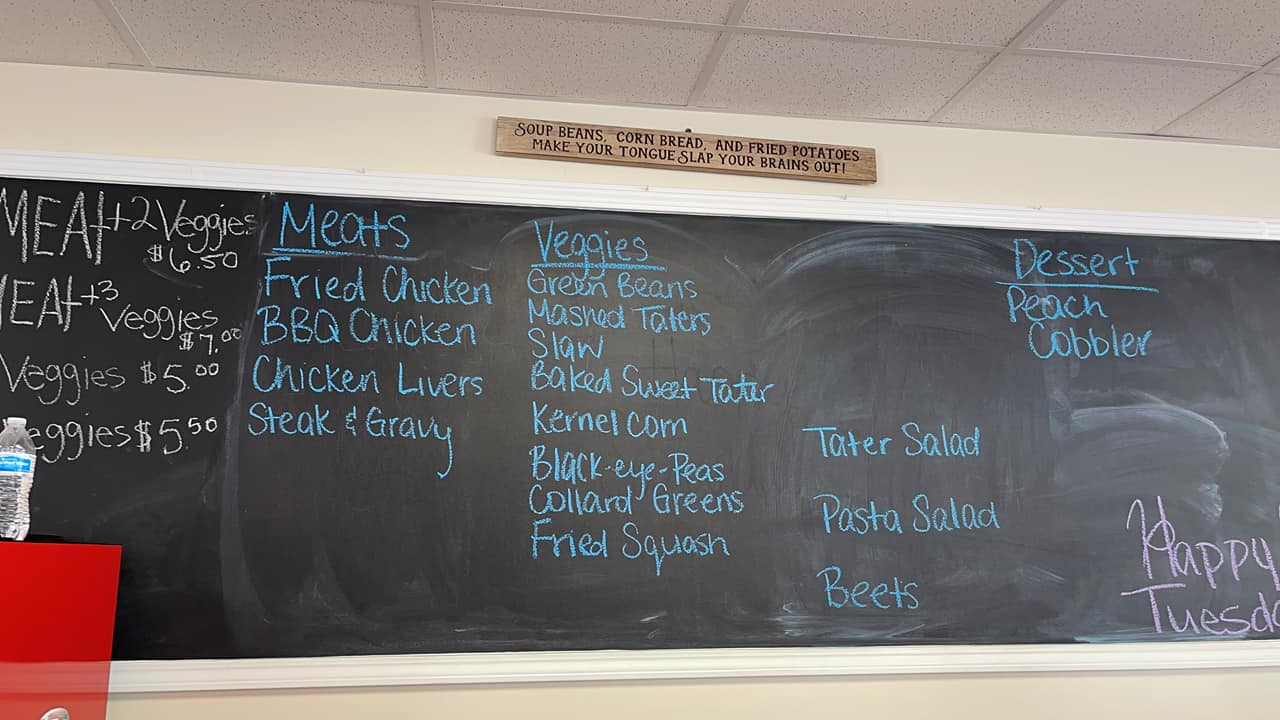 SOUP BEANS, CORN BREAD, AND FRIED POTATOES
MAKE YOUR TONGUE SLAP YOUR BRAINS OUT!
MEAT +2 Veggies
$6.50
MEAT +3
Veggies
$7.00
Veggies $5.00
Veggies $5.50
Meats
Fried Chicken
BBQ Chicken
Chicken Livers
Steak & Gravy
Veggies
Green Beans
Mashed Taters
Slaw
Baked Sweet Tater
Kernel corn
Black-eye-Peas
Collard Greens
Fried Squash
Tater Salad
Pasta Salad
Beets
Dessert
Peach
Cobbler
Happy
Tuesda